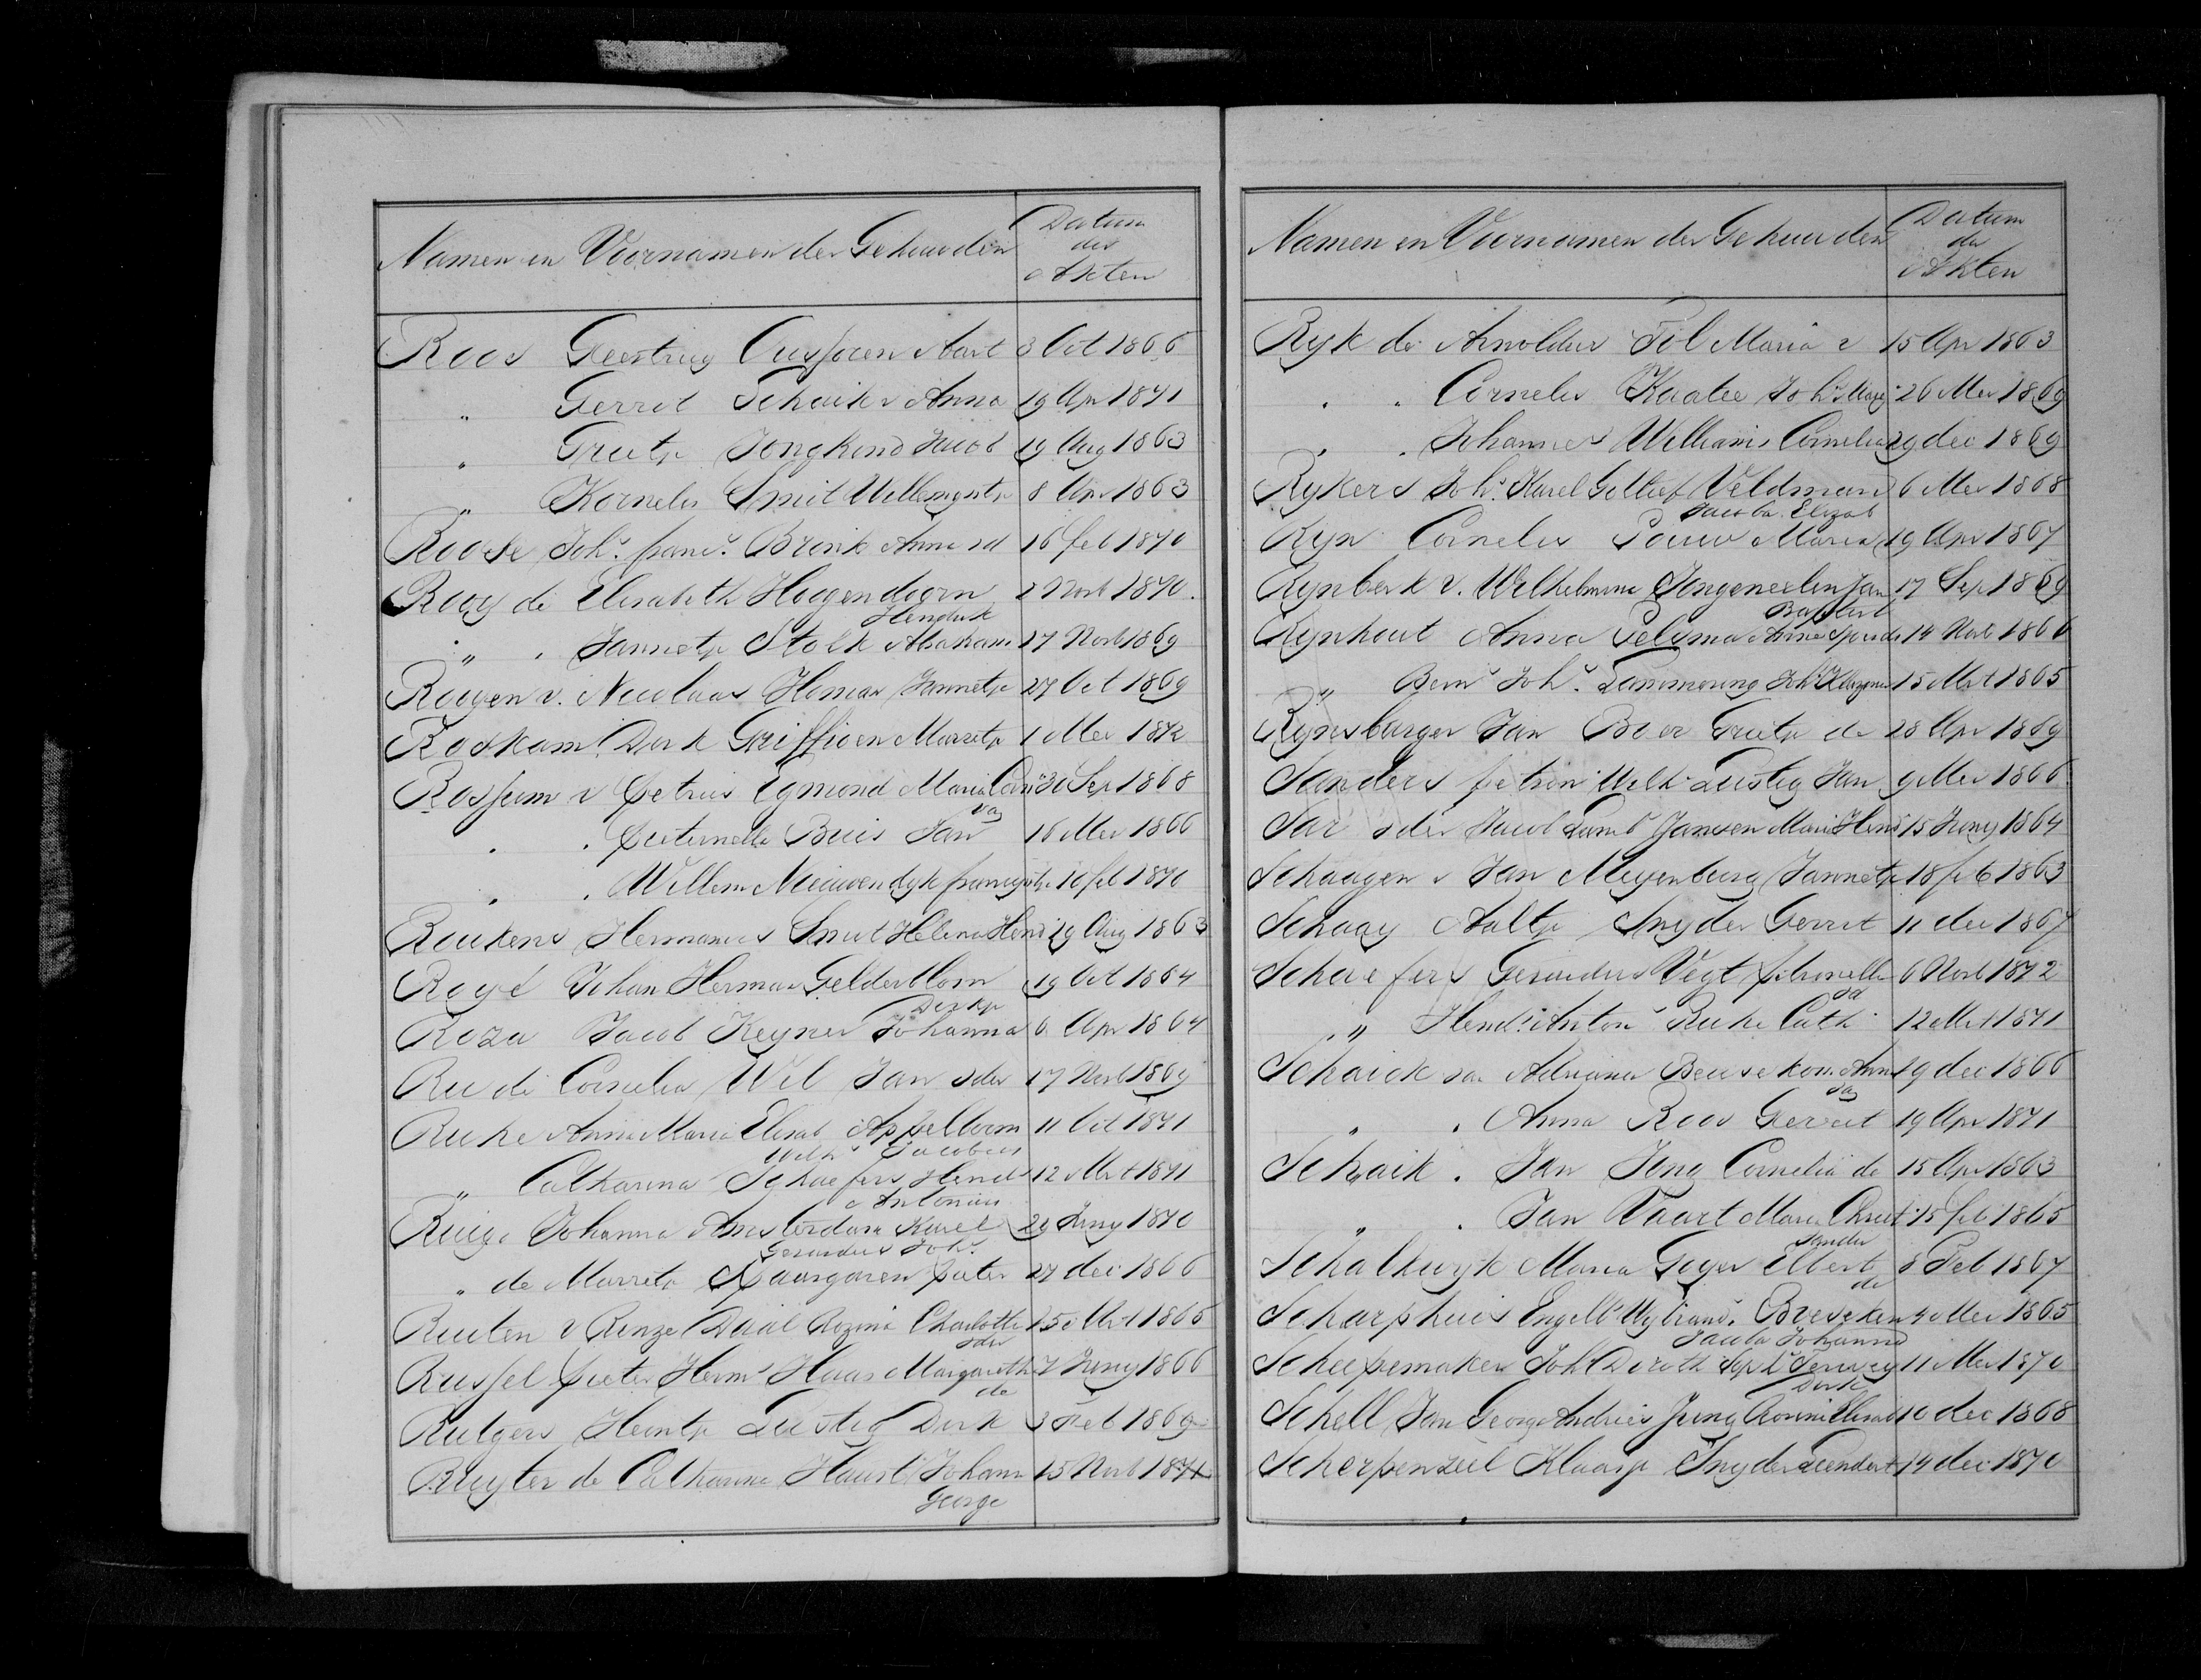 Namen en Voornamen der Gehuwden
Datum
der
Akten
Roos Geertruy Aart 3 Oct 1866
" Gerrit Schaik v Anna 19 Apr 1871
" Grietje Jongkind Jacob 19 Aug 1863
" Kornelis Smit Willemyntje 8 Apr 1863
Roose Johs. francs. Brink Anna vd 16 feb 1870
Rooy de Elisabeth Hoogendoorn 2 Novb 1870.
Hendrik
" . Jannetje Stolk Abraham 17 Novb 1869
Rooyen v. Nicolaas Homan Jannetje 27 Oct 1869
Roskam Dirk Griffioen Marretje 1 Mei 1872
Rossum v Petrus Egmond Maria Corna 30 Sep 1868
van
" . Pieternella Buis Jan 16 Mei 1866
" . Willem Nieuwendyk francyntje 16 feb 1870
Roukens Hermanus Smit Helena Hend 19 Aug 1863
Royé Johan Herman Gelderblom 19 Oct 1864
Dirkje
Roza Jacob Keyner Johanna 6 Apr 1864
Rue de Cornelia Wel Jan vder 17 Novb 1869
Ruhe Anna Maria Elisab Appelboom 11 Oct 1871
Wilhs Jacobus
" Catharina Schaefers Hend 12 Mrt 1871
Antonius
Ruige Johanna Amsterdam Karel 29 Juny 1870
Gerardus Johs.
" de Marretje Spaargaren Pieter 27 dec 1866
Ruiten v Renze Daal Rozina Charlotte 15 Mrt 1865
vder
Russel Pieter Herms Haas Margaretha 7 Juny 1866
de
Rutgers Heintje Lustig Dirk 3 Feb 1869
Ruyter de Catharina Haust Johann 15 Novb 1871
George
Namen en Voornamen der Gehuwden
Datum
der
Akten
Ryk de Arnoldus Tol Maria v 15 Apr 1863
" . Cornelis Kaatee Joha Maria 26 Mei 1869
" . Johannes Willems Cornelia 29 dec 1869
Rykers Johs. Karel Gotlief Veldman 6 Mei 1868
Jacoba Elizab
Ryn Cornelis Pouw Maria 19 Apr 1867
Rynberk v. Wilhelmina Ingeneeelen Jan 17 Sep 1869
Baptist
Rynhout Anna Pelsma Anne 14 Novb 1866
" Bern Johs. Lammering Joha 15 Mrt 1865
Rynsburger Jan Boer Grietje de 28 Apr 1869
Sanders Petron Wilha Lustig Jan 9 Mei 1866
Sar vder Jacob Lamb Jansen Maria Hend 15 Juny 1864
Schaagen v Jan Meyenburg Jannetje 18 feb 1863
Schaay Aaltje Snyder Gerrit 11 dec 1867
Schaefers Gerardus Vegt Petronella 6 Novb 1872
vd
" Hends. Anton Ruhe Catha 12 Mrt 1871
Schaick van Adriana Beusekom Anna 19 dec 1866
van
" . Anna Roos Gerrit 19 Apr 1871
Schaik . Jan Jong Cornelia de 15 Apr 1863
" . Jan Vaart Maria Christ 15 feb 1865
vander
Schalkwyk Maria Goyer Elbert 8 Feb 1867
de
Scharphuis Engelb Wybrands. Breseken 4 Mei 1865
Jacoba Johanna
Scheepemaker Joha Doroth Sopha Terwey 11 Mei 1870
Dirk
Schell Jan George Andries Jung Elisab 16 dec 1868
Scherpenzeel Klaasje Snyder Leendert 14 dec 1870